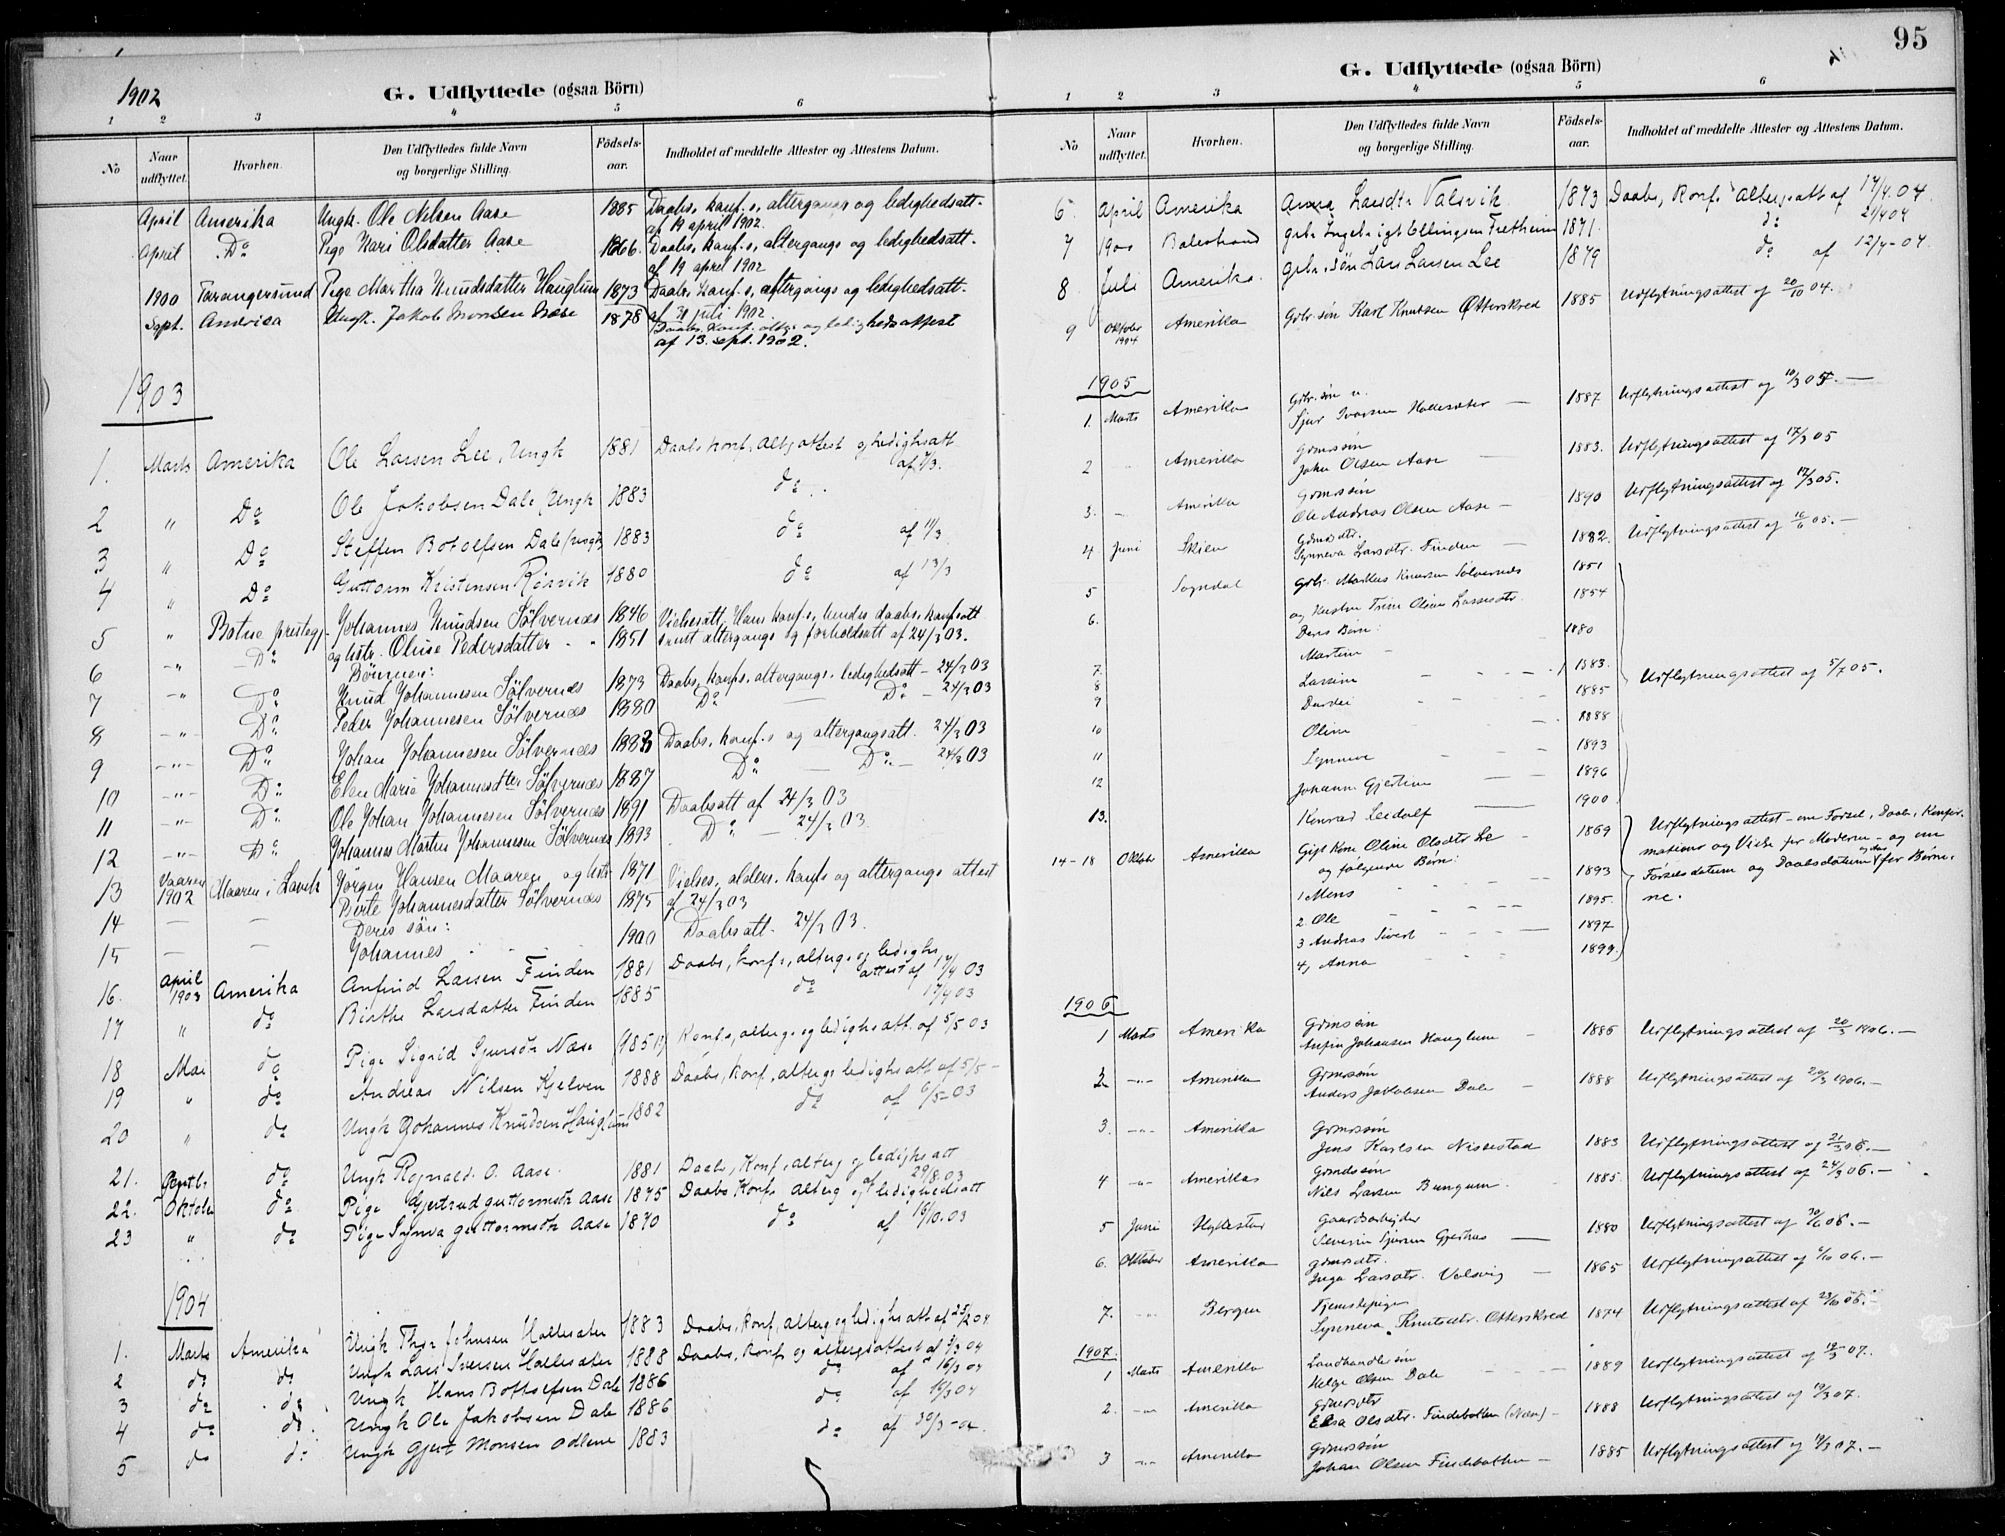 1902
G. Udflyttede (ogsaa Börn)
1 2 3 4 5 6
No Naar udflyttet. Hvorhen. Den Udflyttedes fulde Navn og borgerlige Stilling. Födsels-aar. Indholdet af meddelte Attester og Attestens Datum.
April Amerika Ungk. Ole Nilsen Aase 1885 Daabs, konf.s, altergangs og ledighedsatt. af 19 april 1902.
April Do Pige Kari Olsdatter Aase 1866. Daabs, konf.s, altergangs og ledighedsatt. af 19 april 1902
1900 Farangersund Pige Martha Knudsdatter Hauglum 1873 Daabs, konf.s, altergangs og ledighedsatt. af juli 1902.
Sept. America Ungk. Jakob Monsen Næse 1878 Daabs, konf. altg. og ledighedsattest af 13. sept. 1902.
1903
1. Marts Amerika Ole Larsen Lee, Ungk 1881 Daabs konf., altg attest og ledighsatt af /3.
2 " Do Ole Jakobsen Dale, Ungk 1883 do
3 " Do Steffen Botolfsen Dale, ungk 1883 do af 11/3
4 " Do Guttorm Kristensen Røsvik 1880 do af 13/3
5 " Botne prestegj. Johannes Knudsen Sölvernes 1846 Vielsesatt, Hans konf.s, hendes daabs, konfsatt
6 -"- Do og hstr. Oluise Pedersdatter - " 1851 samt altergangs og forholdsatt af 24/3 03.
Börnene:
7 -"- Do Knud Johannesen Sölvernes 1873 Daabs, konfs, altergangs, ledighedsatt - 24/3 03
8 -"- Do Peder Johannesen Sölvernes 1880 Do — Do - 24/3 03
9 -"- Do Johan Johannesen Sölvernes 1883 Daabs, konf.s og altergangsatt. 24/3 03
10 -"- Do Elen Maria Johannesdter Sölvernes 1887 Do — Do - 24/3 03
11 -"- Do Ole Johan Johannesen Sölvernes 1891 Daabsatt af 24/3 03
12 -"- Do Johannes Martin Johannesen Sölvernes 1893 Do - 24/3 03
13 Vaaren 1902 Maaren i Lavik Jörgen Hansen Maaren og hstr 1871 Vielses, alders, konfs og altergangs attest
14 — — Birte Johannesdatter Sölvernes 1875 af 24/3 03
Deres sön:
15 — — Johannes 1900 Daabsatt. 24/3 03
16. April 1903 Amerika Anfind Larsen Finden 1881 Daabs, konf.s, alterg.s og ledighs attest af 17/4 03
17 " do Birthe Larsdatter Finden 1885 do 17/4 03
18 Mai do Pige Sigrid Sjursdtr Næse 1985 Konf.s, alterg.s og ledighs att. af 5/5 03
19 " do Andreas Nilsen Kjelven 1888 Daabs, konf., alterg.s ledighs att af 5/5 -
20 " do Ungk Johannes Knudsen Hauglum 1882 do af 6/5 03
21. Septbr do Ungk Rognald O. Aase 1881 Daabs, Konf.s, alterg og ledighs att af 29/8.03
22. Oktober do Pige Gjertrud Guttormsdtr Aase 1875 Daabs Konfs Alterg og ledighedsatt
23 " do Pige Synva Guttormsdtr Aase 1870 do af /10.03
1904
1. Marts Amerika Ungk Thge Johnsen Hallesæter 1883 Daabs, konf., alterg og ledighs att af 25/2 04
2 do do Ungk Lars Iversen Hallesæter 1888 Daabs, konfs og altergsattest af 3/3 04
3 do do Ungk Hans Bottolfsen Dale 1886 do af 16/3 04
4 do do Ungk Ole Jakobsen Dale 1886 do af 16/3 04
5 do do Ungk Gjert Monsen Odlene 1883 do af 30/3-04.
95
G. Udflyttede (ogsaa Börn)
1 2 3 4 5 6
No Naar udflyttet. Hvorhen. Den Udflyttedes fulde Navn og borgerlige Stilling. Födsels-aar. Indholdet af meddelte Attester og Attestens Datum.
6 April Amerika Anna Larsdtr Valsvik 1873 Daabs, Konf.s altergs att af 17/4 04
7 1900 Balestrand Ingebrigt Ellingsen Fretheim 1871. do 21/4 04
8 Juli Amerika. Gbr. sön Lars Larsen Lee 1879 do af 12/7-04.
9 Oktober 1904 Amerika Gbr. sön Karl Knutsen Otterskred 1885 Udflytningsattest af 20/10 04.
1905
1. Marts Amerika Gbr. sön Sjur Ivarsen Hallesæter — 1887 Udflytningsattest af 10/3 05. —
2 " Amerika Grmssön Johan Olsen Aase — 1883. Udflytningsattest af 17/3 05
3. - Amerika Grmssön Ole Andreas Olsen Aase - 1890 Udflytningsattest af 17/3 05.
4 Juni Skien Grmsdtr. Synneva Larsdtr. Finden — 1882. Udflytningsattest af 16/6 05. —
5 Sogndal Gbr. Markus Knutsen Sølvernes 1851
6. og Kustru Trine Oline Larsdtr. 1854
Deres Børn:
Martin - 1880
7. Lassine 1883. Udflytningsattest af 5/7 05.
8 Dardei 1885
9 Oline 1888
10 Synneve 1893
11 Johann Gjertine 1896
12 Konrad Leidolf 1900
13.
14-18 Oktober Amerika Gift Kone Oline Olsdtr Le 1869 Udflytningsattest - om Fødsel, Daab, Konfir-
og følgende Børn: mation og Vielse for Moderen - og om
1 Mons 1893 Fødselsdatum og Daabsdatum for Børne-
2 Ole 1895. ne.
3 Andreas Sivert 1897
4, Anna 1899.
1906
1 Marts Amerika Grmssön Anfin Johansen Hauglum — 1886 Udflytningsattest af 20/3 1906. —
2 -"- Amerika Grmssön Anders Jakobsen Dale - 1888 Udflytningsattest af 20/3 1906. —
3. -"- Amerika Grmssön Jens Karlsen Nissestad 1883 Udflytningsattest af 21/3 06. —
4 -"- Amerika Grmdssön Nils Larsen Bungum 1885. Udflytningsattest af 24/3 06. —
5 Juni Hyllestad Gaardsarbejder Severin Sjursen Gjertnes — 1880 Udflytningsattest af 30/6 06. —
6. Oktober Amerika Grmsdtr. Inga Larsdtr. Valsvig — 1865 Udflytningsattest af /10 06. —
7. -"- Bergen Tjenstepige Synneva Knutsdtr. Otterskred 1874 Udflytningsattest af 23/10 06. —
1907.
1 Marts Amerika Landhandlersön Helge Olsen Dale — 1889 Udflytningsattest af 19/3 07.
2. -"- Amerika Grmsdtr Elsa Olsdtr. Findebotten (Næse) - 1888 Udflytningsattest af 19/3 07.
3 -"- Amerika Grmssön Johan Olsen Findebotten — 1885 Udflytningsattest af 19/3 07. —